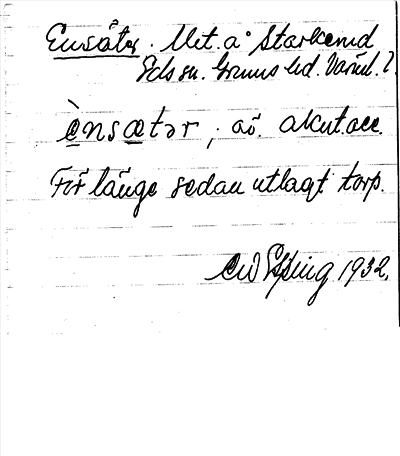 Ensäter. Utt. å Starkemid
Eds sn. Grums hd. Värml. l.
ènsætər, äv. akut acc.
För länge sedan utlagt torp.
1932.